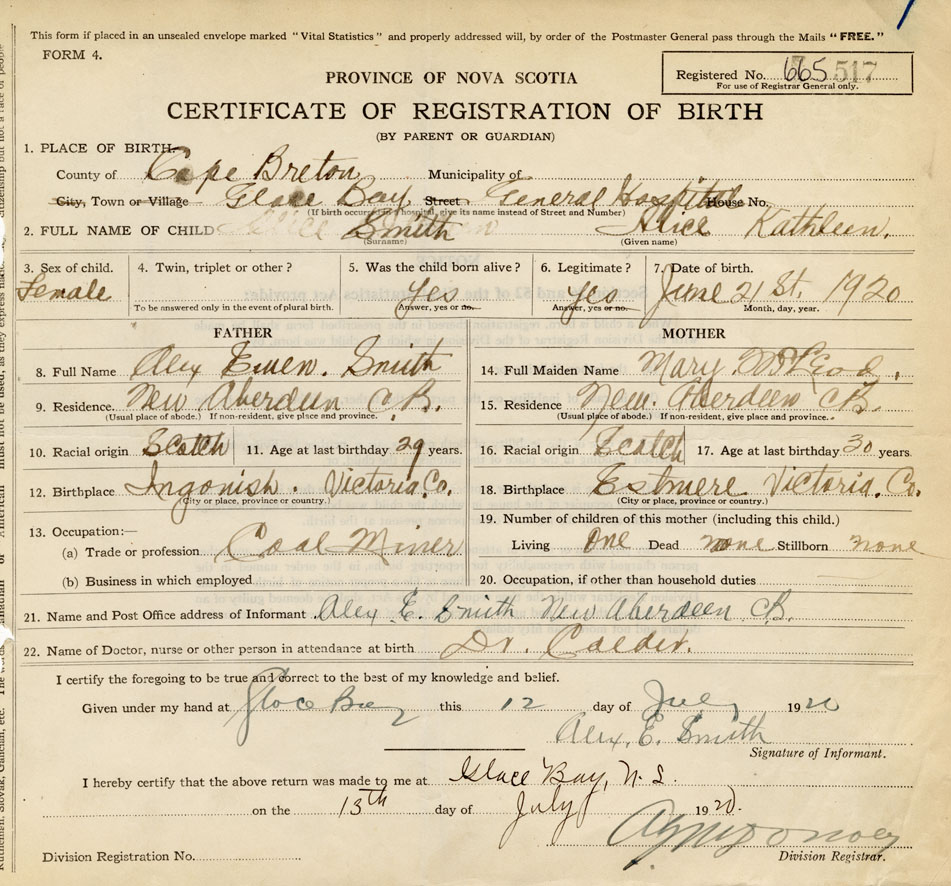 This form if placed in an unsealed envelope marked "Vital Statistics" and properly addressed will, by order of the Postmaster General pass through the Mails "FREE."
FORM 4.
PROVINCE OF NOVA SCOTIA
Registered No. 665 517
For use of Registrar General only.
CERTIFICATE OF REGISTRATION OF BIRTH
(BY PARENT OR GUARDIAN)
1. PLACE OF BIRTH—
County of Cape Breton Municipality of
City, Town or Village Glace Bay Street General Hospital House No.
(If birth occurred in a hospital, give its name instead of Street and Number)
2. FULL NAME OF CHILD Smith Alice Kathleen.
(Surname) (Given name)
3. Sex of child. 4. Twin, triplet or other? 5. Was the child born alive? 6. Legitimate? 7. Date of birth.
Female Yes Yes June 21st, 1920
To be answered only in the event of plural birth. Answer, yes or no. Answer, yes or no. Month, day, year.
FATHER
8. Full Name Alex Ewen. Smith
9. Residence. New Aberdeen C.B.
(Usual place of abode.) If non-resident, give place and province.
10. Racial origin Scotch 11. Age at last birthday 29 years.
12. Birthplace Ingonish. Victoria. Co.
(City or place, province or country.)
13. Occupation:—
(a) Trade or profession Coal Miner
(b) Business in which employed
MOTHER
14. Full Maiden Name Mary McLeod.
15. Residence New. Aberdeen CB.
(Usual place of abode.) If non-resident, give place and province.
16. Racial origin Scotch 17. Age at last birthday 30 years.
18. Birthplace Estmere Victoria. Co.
(City or place, province or country.)
19. Number of children of this mother (including this child.)
Living One Dead none Stillborn none
20. Occupation, if other than household duties
21. Name and Post Office address of Informant Alex E. Smith New Aberdeen C.B.
22. Name of Doctor, nurse or other person in attendance at birth Dr. Calder.
I certify the foregoing to be true and correct to the best of my knowledge and belief.
Given under my hand at Glace Bay this 12 day of July 1920
Alex. E. Smith
Signature of Informant.
I hereby certify that the above return was made to me at Glace Bay, N.S.
on the 13th day of July 1920.
Division Registration No.
Division Registrar.